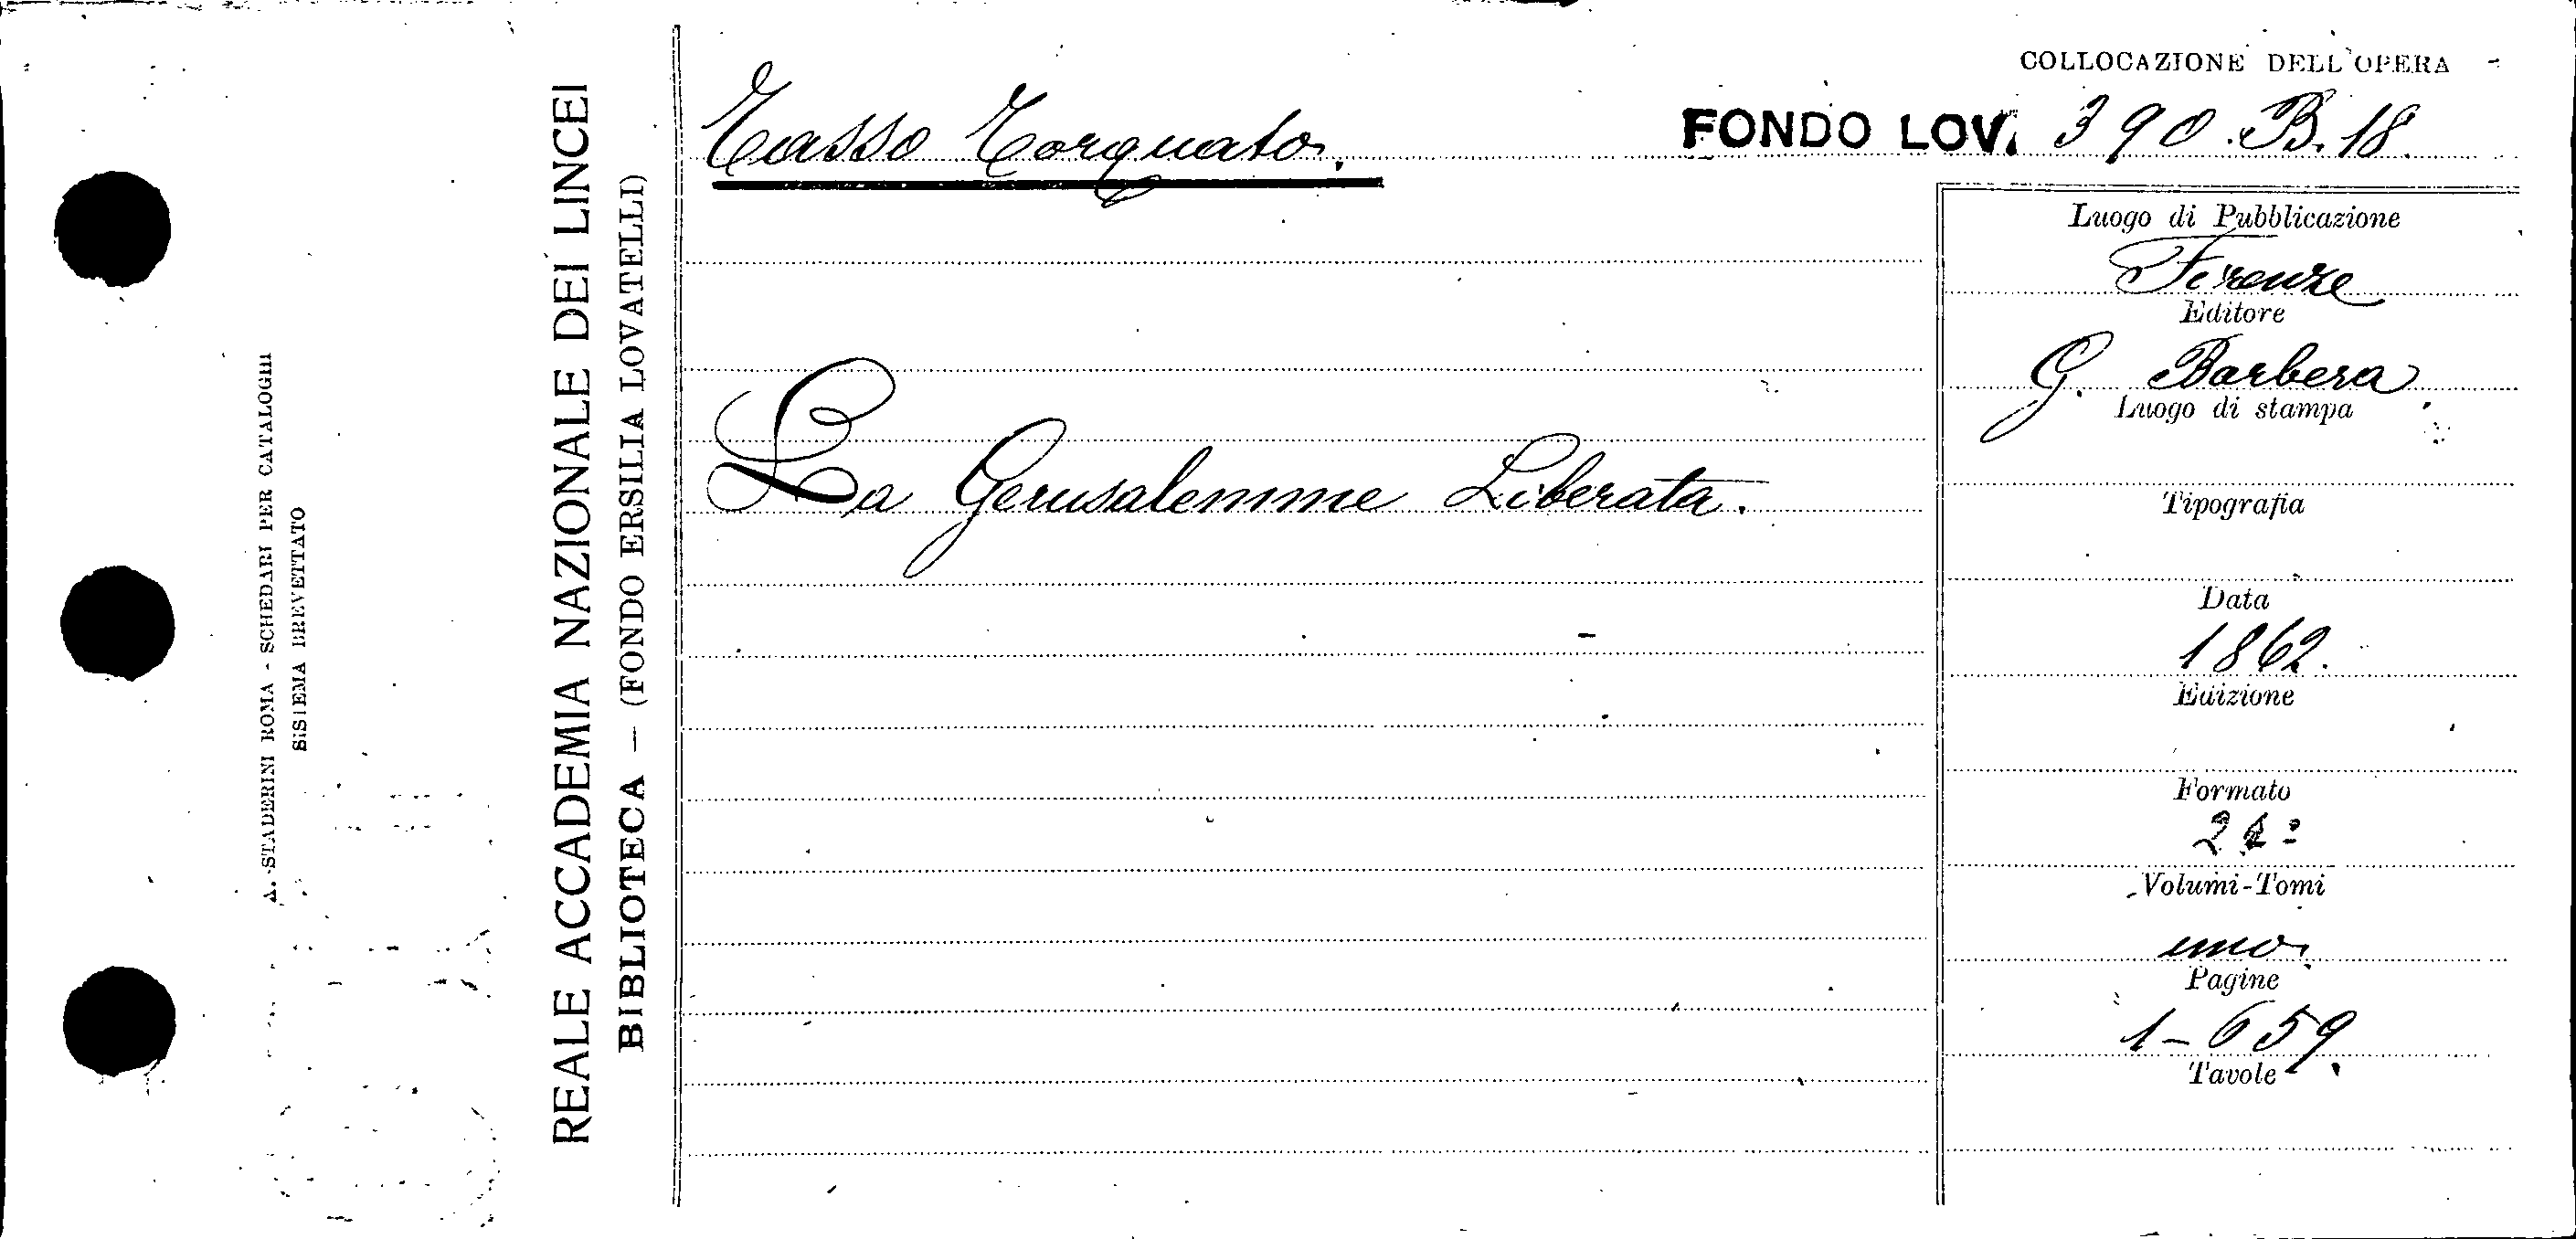 A. STADERINI ROMA - SCHEDARI PER CATALOGHI
SISTEMA BREVETTATO
REALE ACCADEMIA NAZIONALE DEI LINCEI
BIBLIOTECA — (FONDO ERSILIA LOVATELLI)
COLLOCAZIONE DELL'OPERA
Tasso Torquato. FONDO LOV. 390.B.18.
La Gerusalemme Liberata.
Luogo di Pubblicazione
Firenze
Editore
G. Barbera
Luogo di stampa
Tipografia
Data
1862.
Edizione
Formato
Volumi-Tomi
uno.
Pagine
1-659.
Tavole